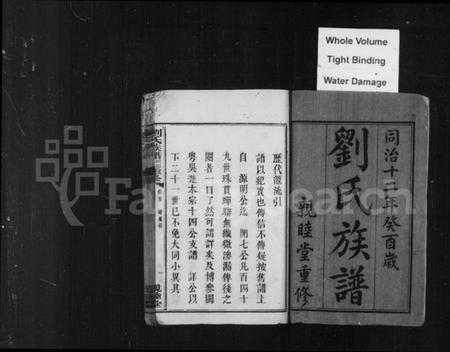 Whole Volume
Tight Binding
Water Damage
同治十二年癸酉歲
劉氏族譜
親睦堂重修
歷代源流引
譜以紀實也傳信不傳疑按舊譜上
自 源明公迄 開七公凡百四十
九世珠貫蟬聯無纖微滲漏俾後之
閱者一目了然可謂詳矣及博參閩
粵吳楚本宗十四公支譜 詳公以
下二十一世已不免大同小異其
FamilySearch